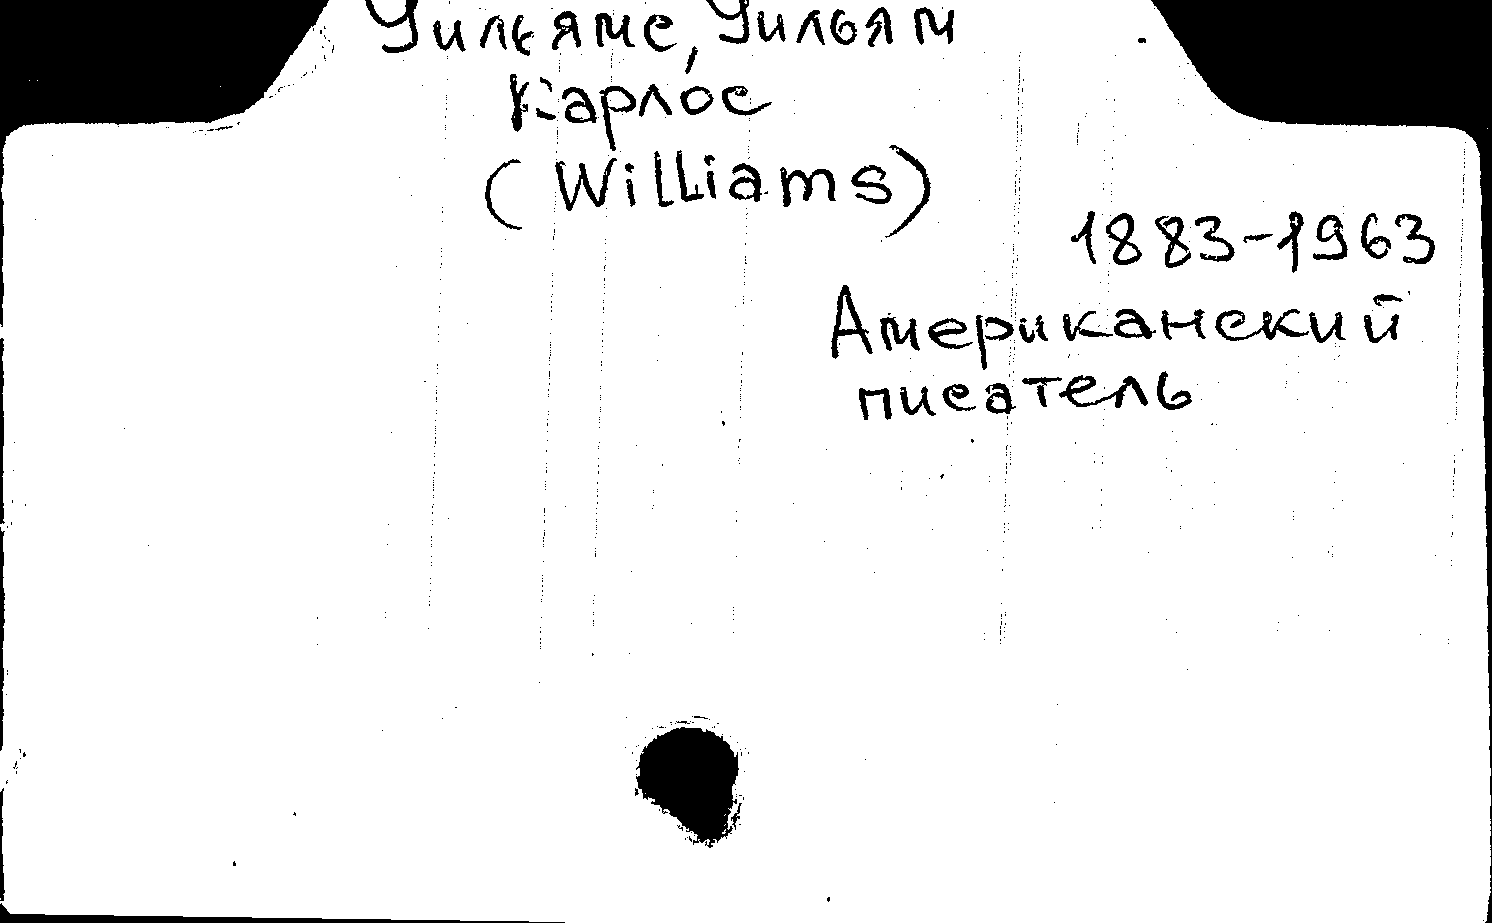 Уильямс, Уильям
Карлос
(Williams)
1883-1963
Американский
писатель